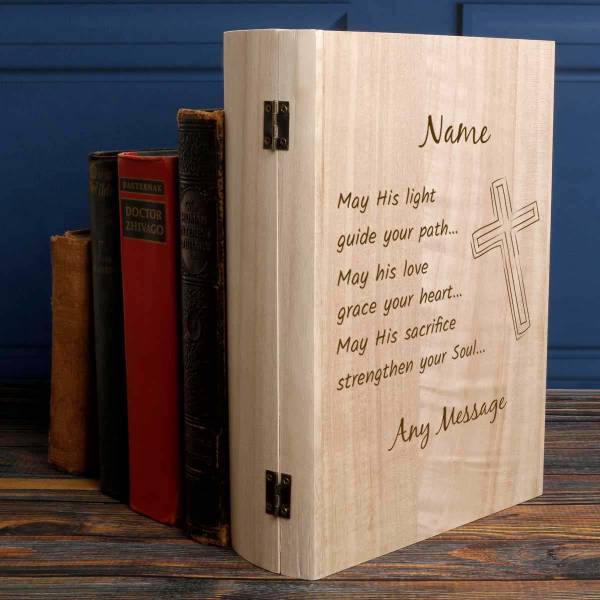 PASTERNAK
DOCTOR
ZHIVAGO
Name
May His light
guide your path...
May his love
grace your heart...
May His sacrifice
strengthen your Soul...
Any Message